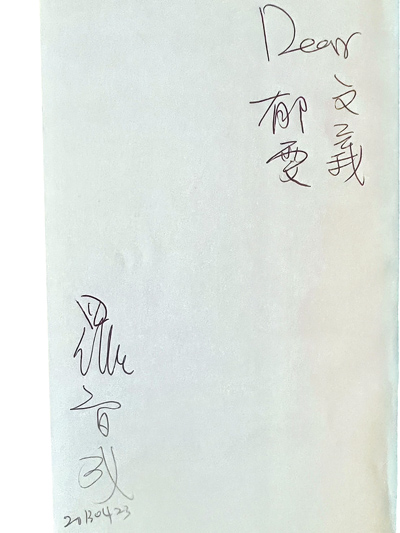 Dear
文義
郁雯
羅智成
20130423